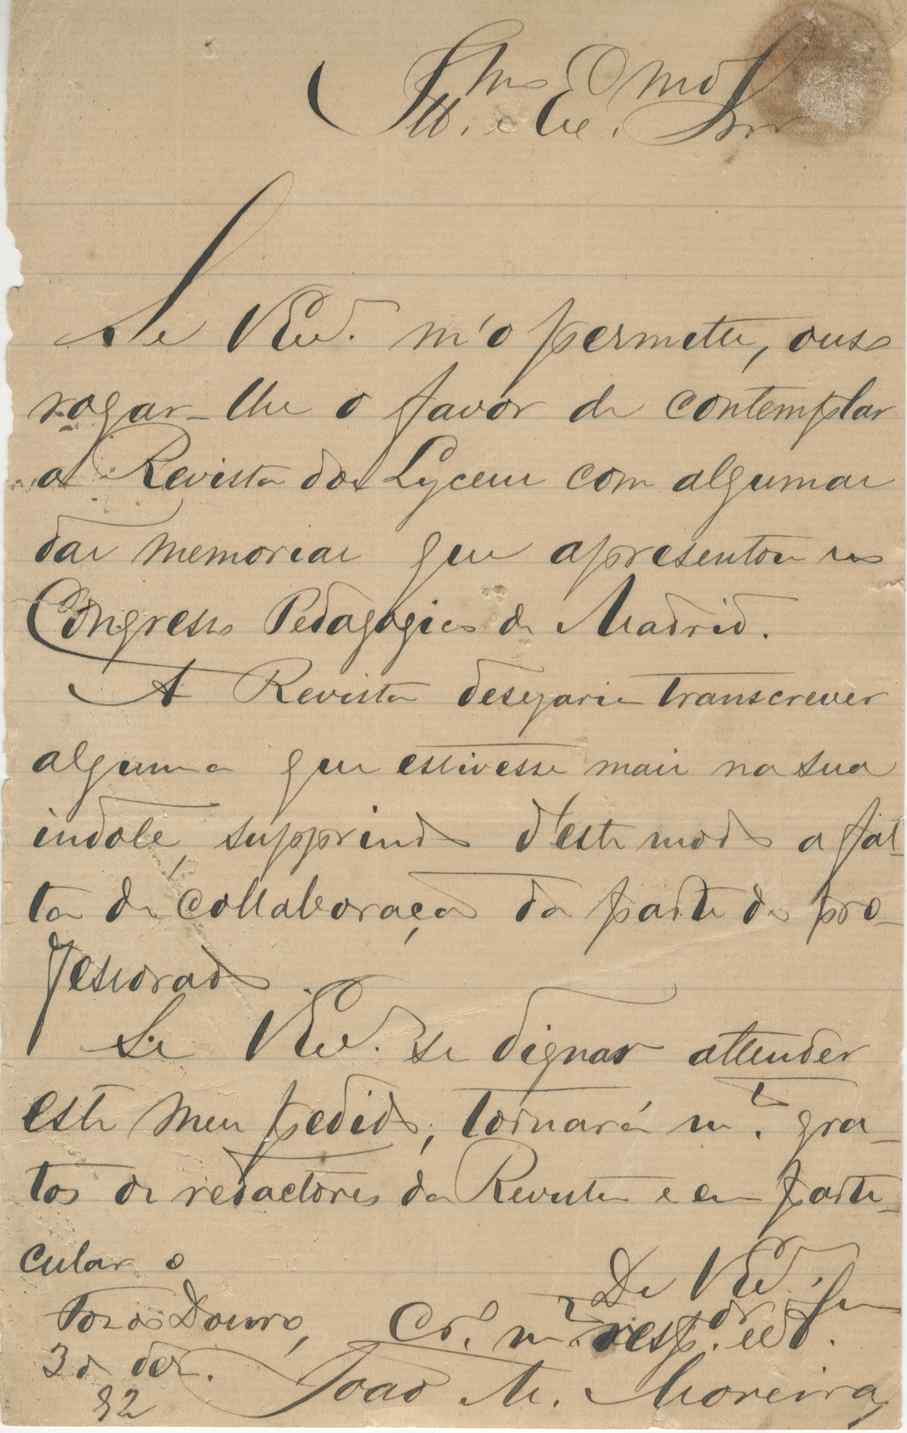 Ill.mo e Ex.mo Snr
Se V Ex.a m'o permette, ouso
rogar-lhe o favor de contemplar
a Revista do Lyceu com algumas
das memorias que apresentou no
Congresso Pedagogico de Madrid.
A Revista desejaria transcrever
alguma que estivesse mais na sua
indole, supprindo d'este modo a fal-
ta de collaboração da parte do pro-
fessorado.
Se V Ex.a se dignar attender
este meu pedido, tornará m.to gra-
tos os redactores da Revista e em parti-
cular o
De V Ex.a
Foz do Douro,
Cr.o m.to resp.dor e
3 de dez.
92
João M. Moreira